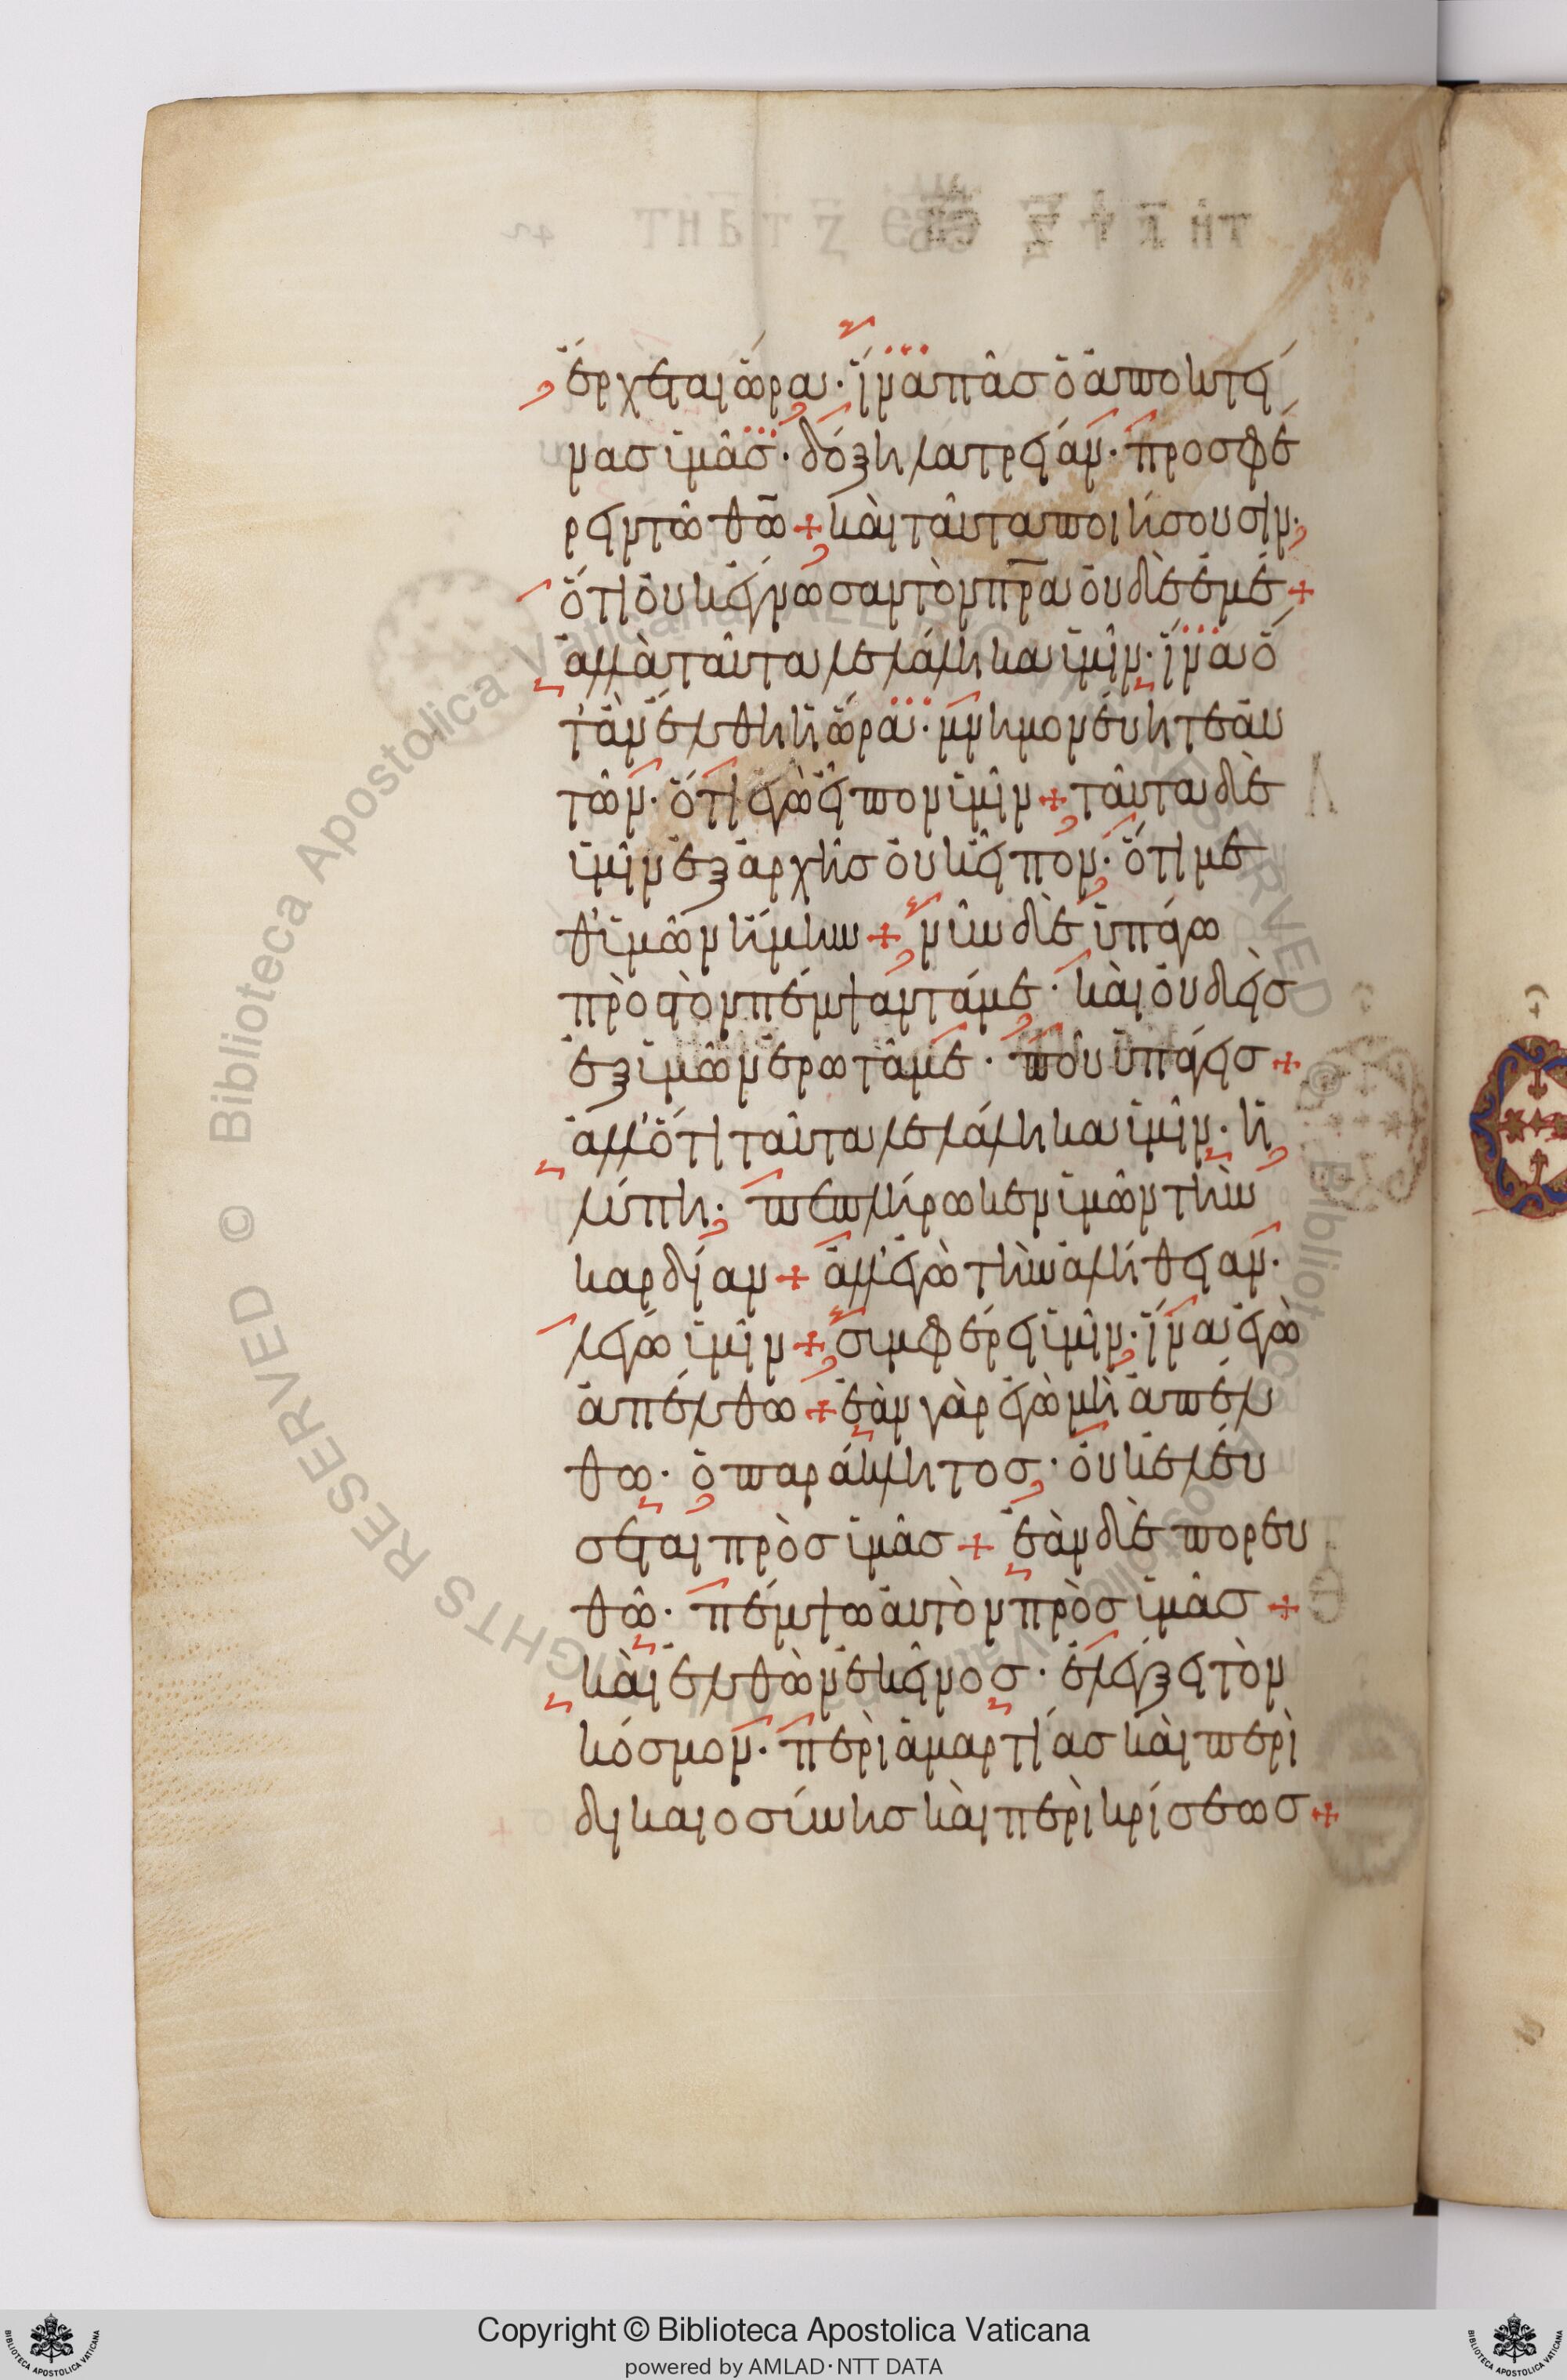 ἔρχεται ὥρα· ἵνα πᾶσ ὁ ἀποκτεί
νασ ὑμᾶσ· δόξη λατρείαν· προσφέ
ρειν τῶ θ̅ω̅ + καὶ ταῦτα ποιήσουσιν·
ὅτι οὐκ ἔγνωσαν τὸν π̅ρ̅α οὐδὲ ἐμέ +
ἀλλὰ ταῦτα λελάληκα ὑμῖν· ἵνα ὅ
τ' ἂν ἔλθη ἡ ὥρα· μνημονεύητε αὐ
τῶν· ὅτι ἐγὼ εἶπον ὑμῖν + ταῦτα δὲ
ὑμῖν ἐξ ἀρχῆσ οὐκ εἶπον· ὅτι με
θ' ὑμῶν ἤμην + νῦν δὲ ὑπάγω
πρὸσ τὸν πέμψαντά με· καὶ οὐδεὶσ
ἐξ ὑμῶν ἐρωτᾶ με· ποῦ ὑπάγεισ +
ἀλλ' ὅτι ταῦτα λελάληκα ὑμῖν· ἡ
λύπη· πεπλήρωκεν ὑμῶν τὴν
καρδίαν + ἀλλ' ἐγὼ τὴν ἀλήθειαν·
λέγω ὑμῖν + συμφέρει ὑμῖν· ἵνα ἐγὼ
ἀπέλθω + ἐὰν γὰρ ἐγὼ μὴ ἀπέλ
θω· ὁ παράκλητοσ· οὐκ ἐλεύ
σεται πρὸσ ὑμᾶσ + ἐὰν δὲ πορευ
θῶ· πέμψω αὐτὸν πρὸσ ὑμᾶσ +
καὶ ἐλθὼν ἐκεῖνοσ· ἐλέγξει τὸν
κόσμον· περὶ ἁμαρτίασ καὶ περὶ
δικαιοσύνησ καὶ περὶ κρίσεωσ +
Copyright © Biblioteca Apostolica Vaticana
powered by AMLAD·NTT DATA